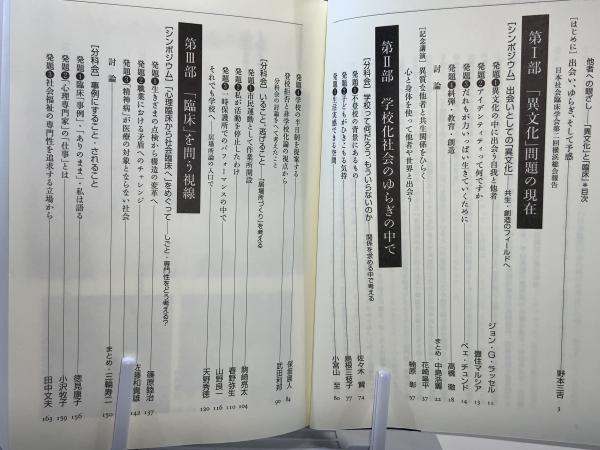 他者への眼ざし―「異文化」と「臨床」*目次
[はじめに] 出会い、ゆらぎ、そして予感
日本社会臨床学会第三回横浜総会報告
野本三吉 3
第Ⅰ部 「異文化」問題の現在
[シンポジウム] 出会いとしての「異文化」 共生・創造のフィールドへ
発題❶異文化の中に出会う自我と他者 ジョン・G・ラッセル 11
発題❷アイデンティティって何ですか 豊住マルシア 13
発題❸だれもが力いっぱい生きていくために ペェ・チュンド
発題❹糾弾・教育・創造 高橋徹 18
討論 まとめ・中島浩籌 22
[記念講演] 異質な他者と共生関係をひらく 花崎皋平 37
心と身体を使って他者や世界と出会う 鳥山敏子
第Ⅱ部 学校化社会のゆらぎの中で
[分科会] 学校って何だろう、もういらないのか 関係を求める中で考える
発題❶不登校の背景にあるもの 佐々木賢 74
発題❷子どもがひきこもる気持 島根三枝子 77
発題❸生活実感できる空間 小宮山至 80
発題❹学校の生き日朝を提案する
登校拒否と非学校化論の視点から 84
分科会の討論をへて考えたこと 武田利邦 90
[分科会] いること、逃げること 「居場所づくり」を考える
発題❶市民運動として作業所開設 駒崎亮太 104
発題❷私が活動を停止したわけ 春野弥生 110
発題❸一時保護所でのパフォーマンスの中で 山野良一 116
それでも学校へ―居場所論の入口で 天野秀徳 120
第Ⅲ部 「臨床」を問う視線
[シンポジウム] 「心理臨床から社会臨床へ」をめぐって しごと・専門性をどう考える?
発題❶生きざまの点検から構造の変革へ 篠原睦治 137
発題❷職業における矛盾へのチャレンジ 佐藤和喜雄 142
発題❸「精神病」が医療の対象とならない社会
討論 まとめ・三輪寿二 150
[分科会] 事例にすること・されること
発題❶臨床「事例」・「ありのまま」・私は語る 徳見康子 156
発題❷「心理専門家」の「仕事」とは 小沢牧子 159
発題❸社会福祉の専門性を追求する立場から 田中文夫 163